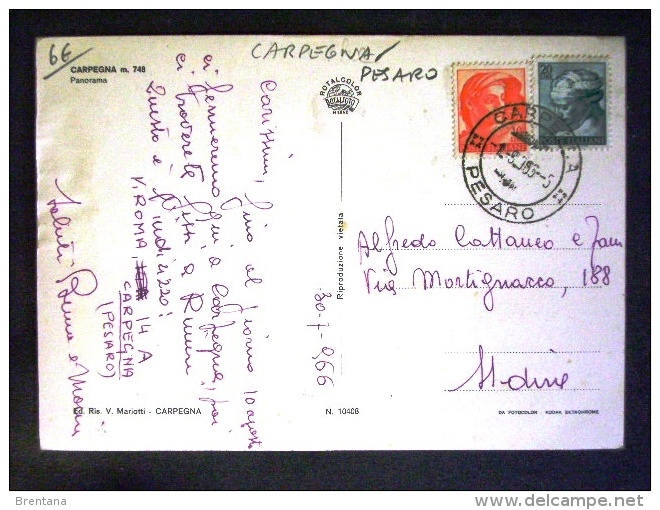 6E
CARPEGNA/
PESARO
CARPEGNA m. 748
Panorama
Carissimi, fino al giorno 10 agosto
ci fermeremo qui a Carpegna, poi
ci troverete tutti a Rimini
Questo è l'indirizzo:
V. ROMA, 14 A
CARPEGNA
(PESARO)
Saluti
30-7-966
ROTALCOLOR
ROTALFOTO
MILANO
Riproduzione vietata
POSTE ITALIANE
CARPEGNA
PESARO
Alfredo Cattaneo e fam
Via Martignacco, 188
Udine
Ed. Ris. V. Mariotti - CARPEGNA
N. 10408
DA FOTOCOLOR - KODAK EKTACHROME
Brentana
delcampe.net